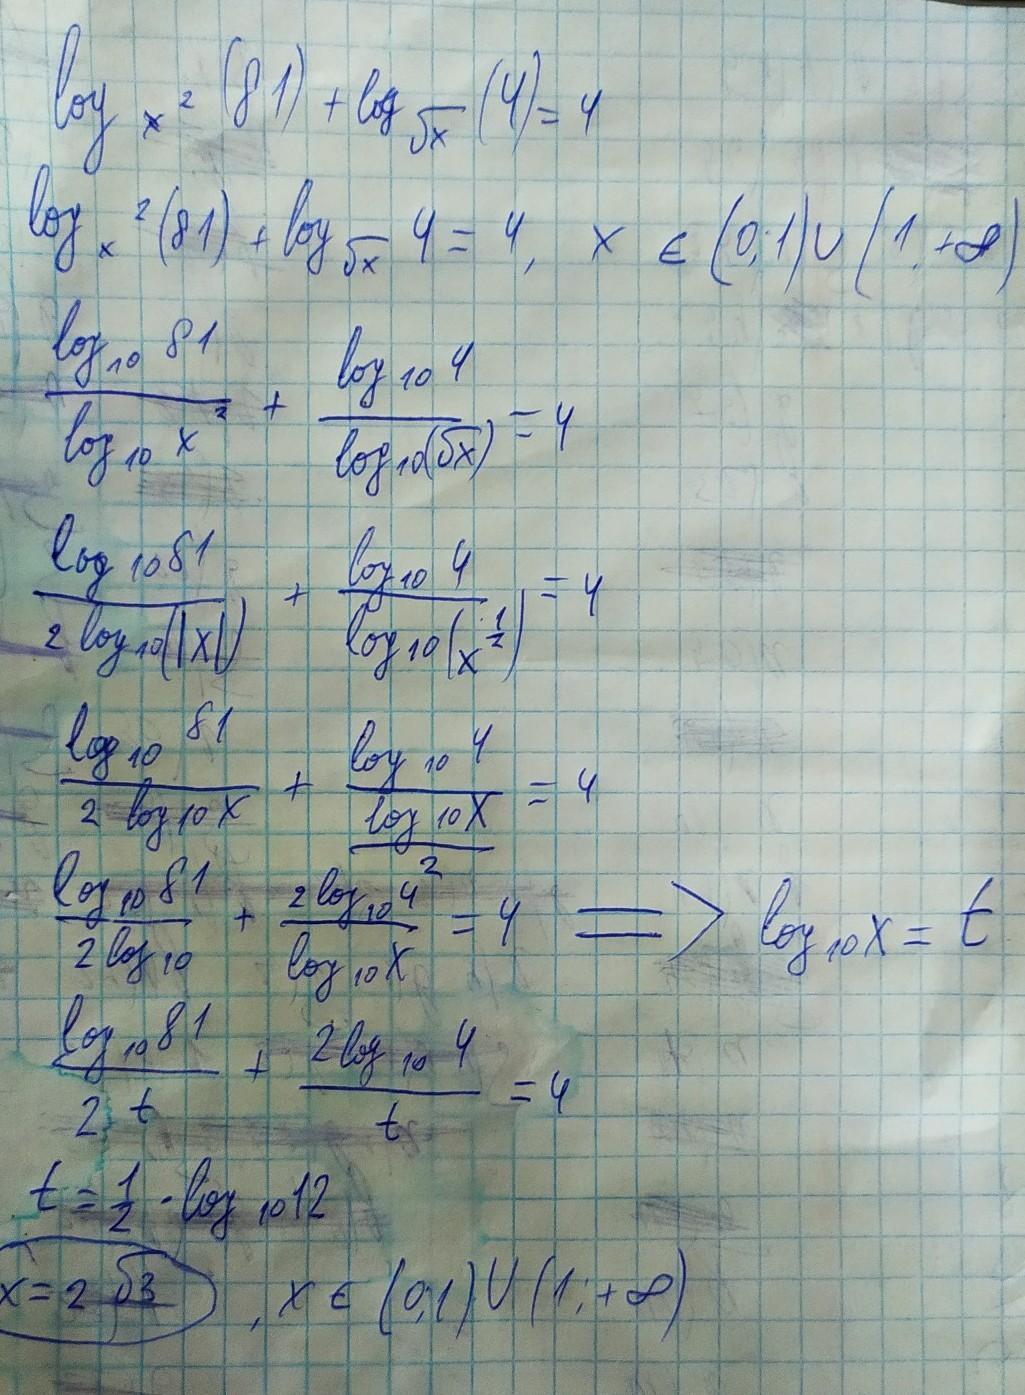 log x² (81) + log √x (4) = 4
log x² (81) + log √x 4 = 4, x ∈ (0;1) ∪ (1; +∞)
log₁₀ 81 / log₁₀ x² + log₁₀ 4 / log₁₀(√x) = 4
log₁₀ 81 / 2 log₁₀(|x|) + log₁₀ 4 / log₁₀(x^½) = 4
log₁₀ 81 / 2 log₁₀ x + log₁₀ 4 / (log₁₀ x / 2) = 4
log₁₀ 81 / 2 log₁₀ + 2 log₁₀ 4 / log₁₀ x = 4 => log₁₀ x = t
log₁₀ 81 / 2 t + 2 log₁₀ 4 / t = 4
t = 1/2 · log₁₀ 12
x = 2 √3, x ∈ (0;1) ∪ (1; +∞)